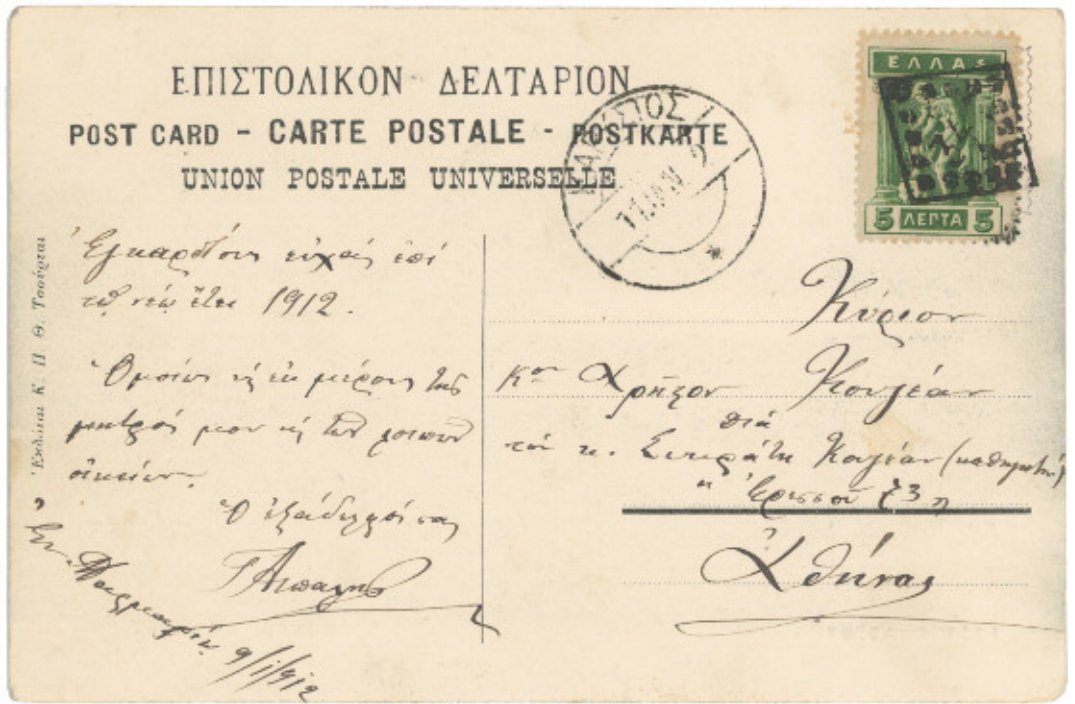 ΕΠΙΣΤΟΛΙΚΟΝ ΔΕΛΤΑΡΙΟΝ
POST CARD - CARTE POSTALE - POSTKARTE
UNION POSTALE UNIVERSELLE
ΕΛΛΑΣ
5 ΛΕΠΤΑ 5
Ἐκδόται Κ. Π. Θ. Τσούρται
Ἐγκαρδίους εὐχὰς ἐπὶ
τῷ νέῳ ἔτει 1912.
Ὁμοίως ἐκ μέρους τῆς
μητρός μου τῶν λοιπῶν
οἰκείων.
Ὁ ἐξάδελφός σας
9/1/912
Κύριον
Κον Χρῆστον Κουγέαν
διὰ
τὸν κ. Κουγέαν (καθηγητήν)
73
Ἀθήνας